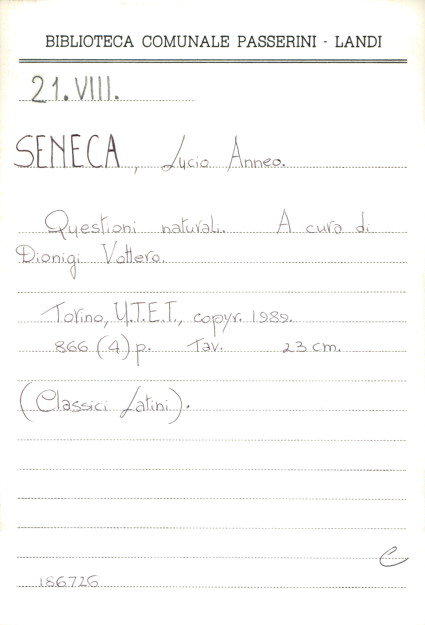 BIBLIOTECA COMUNALE PASSERINI - LANDI
21.VIII.
SENECA, Lucio Anneo.
Questioni naturali. A cura di
Dionigi Vottero.
Torino, U.T.E.T., copyr. 1989.
866 (4) p. Tav. 23 cm.
(Classici Latini).
C
186726